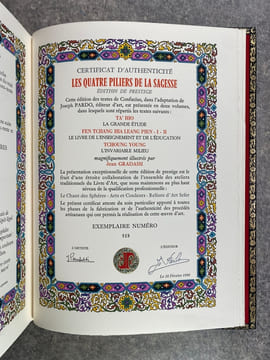 CERTIFICAT D'AUTHENTICITÉ
LES QUATRE PILIERS DE LA SAGESSE
ÉDITION DE PRESTIGE
Cette édition des textes de Confucius, dans l'adaptation de
Joseph PARDO, éditeur d'art, est présentée en deux volumes,
dans lesquels sont répartis les textes suivants :
TA' HIO
LA GRANDE ÉTUDE
FEN TCHANG HIA LEANG PIEN - I - II
LE LIVRE DE L'ENSEIGNEMENT ET DE L'ÉDUCATION
TCHOUNG YOUNG
L'INVARIABLE MILIEU
magnifiquement illustrés par
Jean GRADASSI
La présentation exceptionnelle de cette édition de prestige est le
fruit d'une étroite collaboration de l'ensemble des ateliers
traditionnels du Livre d'Art, que nous maintenons au plus haut
niveau de la qualification professionnelle :
Le Chant des Sphères - Arts et Couleurs - Reliure d'Art Sefer
Le présent certificat atteste du soin particulier apporté à toutes
les phases de la fabrication et de l'authenticité des procédés
artisanaux qui ont permis la réalisation de cette œuvre d'art.
EXEMPLAIRE NUMÉRO
L'ARTISTE
L'ÉDITEUR